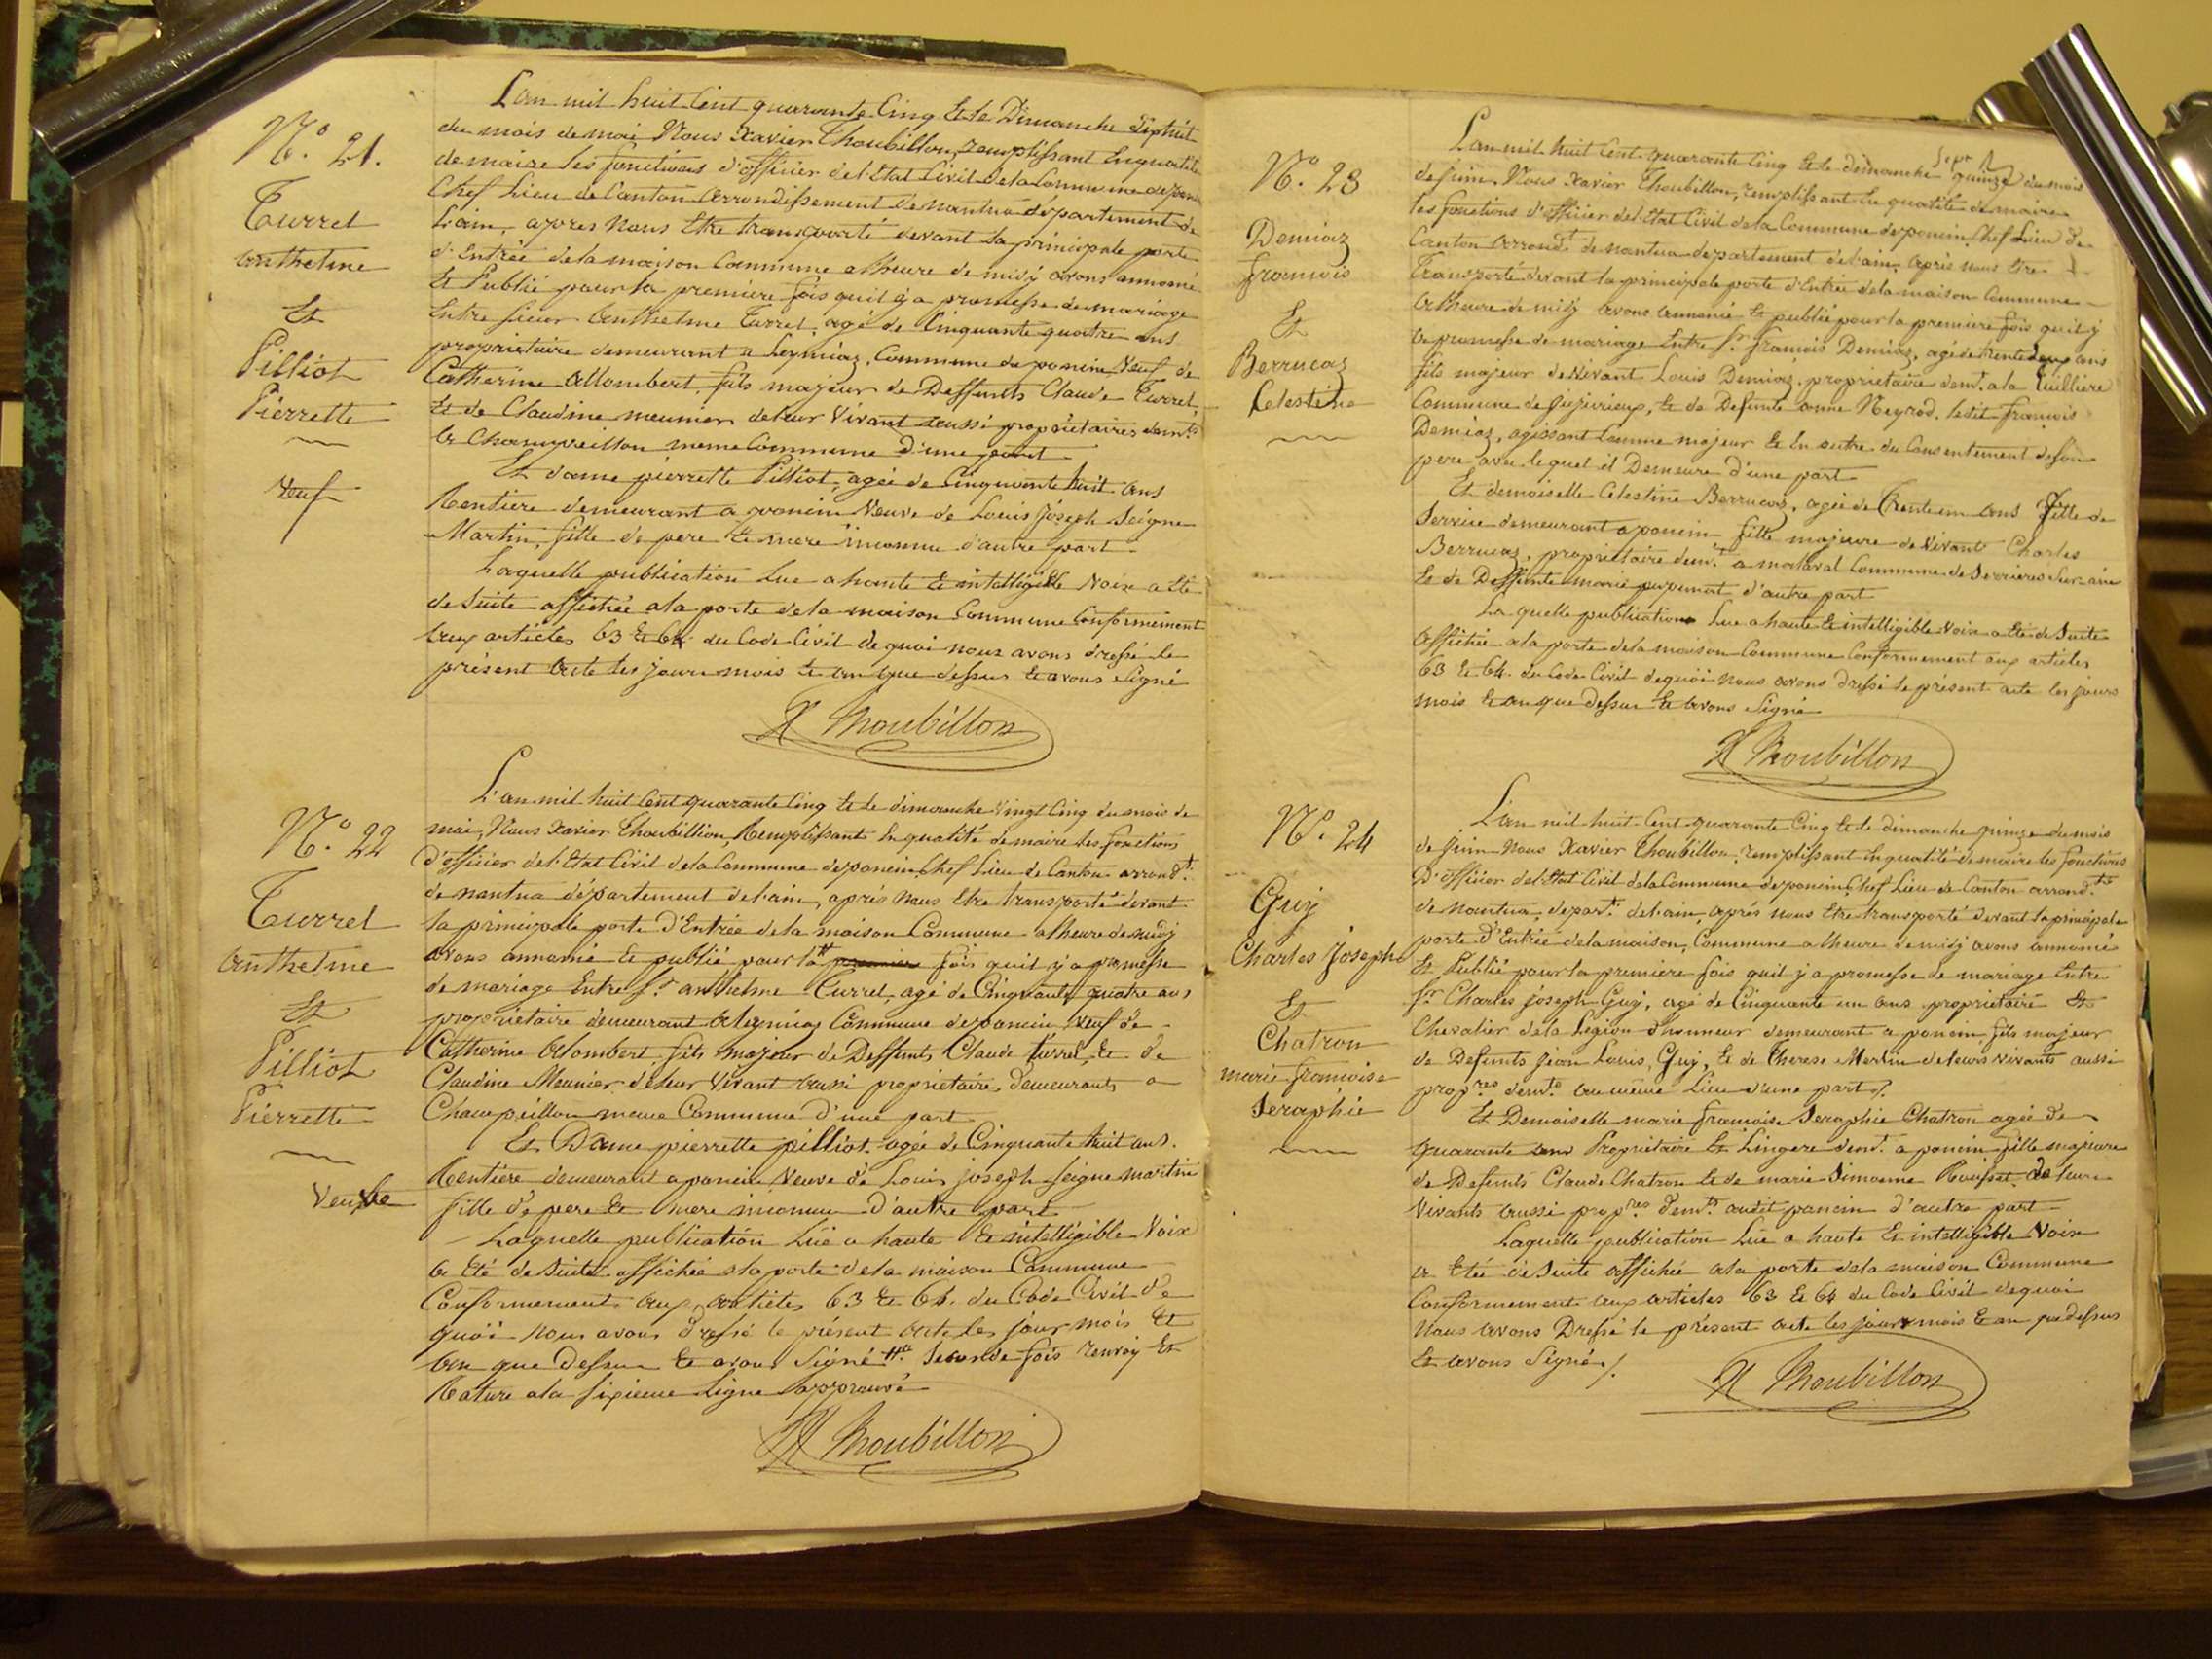 N.° 21.
Turrel
anthelme
Et
Pilliot
Pierrette
Veuf
L'an mil huit Cent quarante Cinq Et le Dimanche dixhuit
du mois de mai Nous Xavier Thoubillon, remplissant En qualité
de maire les fonctions d'officier de l'Etat Civil de la Commune de poncin
Chef Lieu de Canton arrondissement de nantua département de
L'ain, apres Nous Etre transporté devant la principale porte
d'Entrée de la maison Commune a lheure de midy avons annoncé
Et Publié pour la premiere fois quil y a promesse de mariage
Entre sieur Anthelme Turrel, agé de Cinquante quatre ans
proprietaire demeurant a Leymiaz, Commune de poncin Veuf de
Catherine Allombert, fils majeur de Deffunts Claude Turrel,
Et de Claudine meunier de leur Vivant aussi propriétaires demts
a Champeillon meme Commune d'une part
Et dame pierrette Pilliot, agée de Cinquante huit ans
Rentiere demeurant a poncin Veuve de Louis Joseph Seigne
Martin, fille de pere Et mere inconnu d'autre part
Laquelle publication Lue a haute Et intelligible Voix a Eté
de Suite affichée a la porte de la maison Commune Conformement
aux articles 63 Et 64 du Code Civil de quoi nous avons dressé le
présent acte les jour mois Et an que dessus Et avons Signé
X Thoubillon
N.° 22
Turrel
anthelme
Et
Pilliot
Pierrette
Veuve
L'an mil huit Cent quarante Cinq Et le dimanche Vingt Cinq du mois de
mai, Nous Xavier Thoubillion, Remplissant En qualité de maire les fonctions
d'officier de l'Etat Civil de la Commune de poncin Chef Lieu de Canton arrond.t
de nantua département de l'ain, aprés Nous Etre transporté devant
la principale porte D'Entrée de la maison Commune a lheure de midy
avons annoncé Et publié pour la # premier fois quil y a promesse
de mariage Entre S.r anthelme Turrel, agé de Cinquante quatre ans
proprietaire demeurant a Leymiaz Commune de poncin Veuf de
Catherine Alombert, fils majeur de Deffunts Claude Turrel, Et de
Claudine Meunier de leur Vivant aussi proprietaires demeurants a
Champeillon meme Commune d'une part
Et Dame pierrette pilliot agée de Cinquante huit ans.
Rentiere demeurant a poncin Veuve de Louis joseph Seigne martin
fille de pere Et mere inconnu D'autre part
Laquelle publication Lue a haute Et intelligible Voix
a Eté de Suite affichée a la porte de la maison Commune
Conformement aux articles 63 Et 64. du Code Civil de
quoi nous avons dressé le présent acte les jour mois Et
an que Dessus Et avons Signé # Seconde fois renvoy Et
Rature a la sixieme Ligne approuvé
X Thoubillon
N.° 23
Demiaz
francois
Et
Berrucaz
Celestine
L'an mil huit Cent quarante Cinq Et le dimanche quinze du mois
de juin Nous Xavier Thoubillon, remplissant En qualité de maire
les fonctions d'officier de l'Etat Civil de la Commune de poncin Chef Lieu de
Canton arrondt de nantua departement de l'ain, aprés nous Etre
Transporté devant la principale porte d'Entrée de la maison Commune
a lheure de midy avons annoncé Et publié pour la premiere fois quil y
a promesse de mariage Entre S.r francois Demiaz, agé de trente deux ans
fils majeur de Vivant Louis Demiaz, proprietaire demt a la Tuilliere
Commune de jujurieux, Et de Defunte anne Neyrod, ledit francois
Demiaz, agissant Comme majeur Et En outre du Consentement de son
pere avec lequel il Demeure d'une part
Et demoiselle Celestine Berrucaz, agée de trente un ans Fille de
Service demeurant a poncin fille majeure de Vivant Charles
Berrucaz, proprietaire demt a malaval Commune de Serrieres Sur ain
Et de Deffunte marie d'autre part
La quelle publication Lue a haute Et intelligible Voix a Eté de Suite
affichée a la porte de la maison Commune Conformement aux articles
63 Et 64. du Code Civil de quoi nous avons dressé le présent acte les jours
mois Et an que dessus Et avons Signé
X Thoubillon
N.° 24
Guy
Charles Joseph
Et
Chatron
marie francoise
Seraphie
L'an mil huit Cent quarante Cinq Et le dimanche quinze du mois
de juin Nous Xavier Thoubillon, remplissant En qualité de maire les fonctions
D'officier de l'Etat Civil de la Commune de poncin Chef Lieu de Canton arrond.t
de nantua, depart.t de l'ain, aprés nous Etre transporté devant la principale
porte d'Entrée de la maison Commune a lheure de midy avons annoncé
Et Publié pour la premiere fois quil y a promesse de mariage Entre
S.r Charles joseph Guy, agé de Cinquante un ans proprietaire Et
Chevalier de la Légion d'honneur demeurant a poncin, fils majeur
de Defunts Jean Louis Guy, Et de Therese Merlin de leurs vivants aussi
propres demts au meme Lieu d'une part
Et Demoiselle marie francoise Seraphie Chatron agée de
quarante ans Proprietaire Et Lingere demt a poncin fille majeure
de Defunts Claude Chatron Et de marie Simonne Rousset de leurs
Vivants aussi propres demts audit poncin d'autre part
Laquelle publication Lue a haute Et intelligible Voix
a Etée de Suite affichée a la porte de la maison Commune
Conformement aux articles 63 Et 64 du Code Civil de quoi
Nous avons Dressé le présent acte les jour mois Et an que dessus
Et avons Signé ./.
X Thoubillon